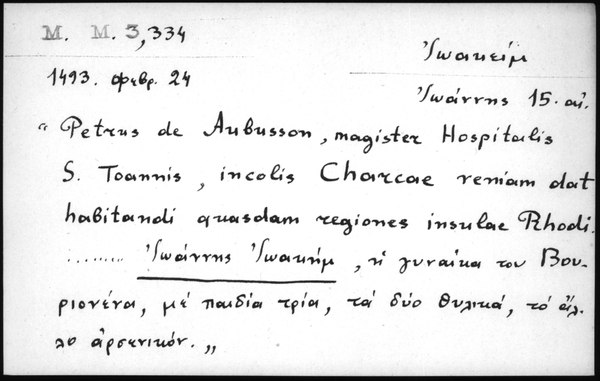 M. M. 3,334
Ἰωακείμ
1493. Φεβρ. 24
Ἰωάννης 15. αἰ.
“ Petrus de Aubusson, magister Hospitalis
S. Ioannis, incolis Charcae veniam dat
habitandi quasdam regiones insulae Rhodi.
........ Ἰωάννης Ἰωακήμ, ἡ γυναίκα του Βου-
ριονένα, μέ παιδία τρία, τά δύο θυλικά, τό ἄλ-
λο ἀρσενικόν. „